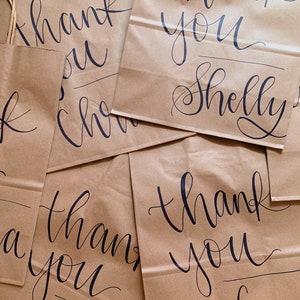 thank
you
Chr
you
Shelly
thank
you
thank
you